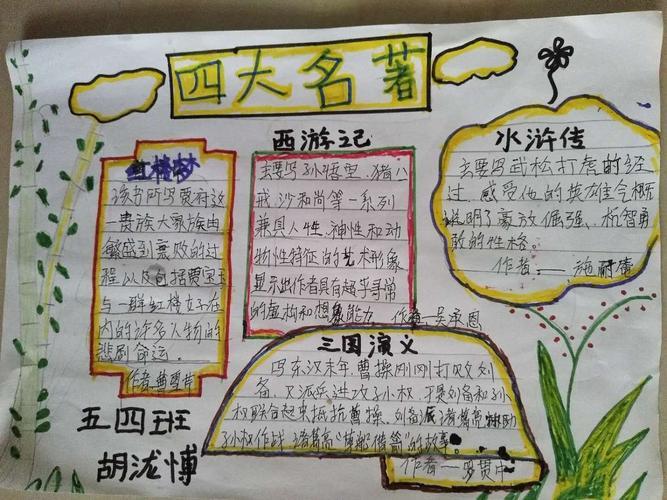 四大名著
红楼梦
该书所写贾府这
一贵族大家族由
繁盛到衰败的过
程以及包括贾宝玉
与一群红楼女子在
内的许多人物的
悲剧命运.
作者曹雪芹
西游记
主要写孙悟空、猪八
戒、沙和尚等一系列
兼具人性、神性和动
物性特征的艺术形象
显示出作者具有超乎寻常
的虚构和想象能力
作者—吴承恩
水浒传
主要写武松打虎的经
过,感受他的英雄气概
说明了豪放倔强、机智勇
敢的性格。
作者——施耐庵
三国演义
写东汉末年曹操刚刚打败刘
备、又派兵进攻孙权、于是刘备和孙
权联合起来抵抗曹操、刘备派诸葛亮帮助
孙权作战 诸葛亮“草船借箭”的故事。
作者—罗贯中
五四班
胡泷博